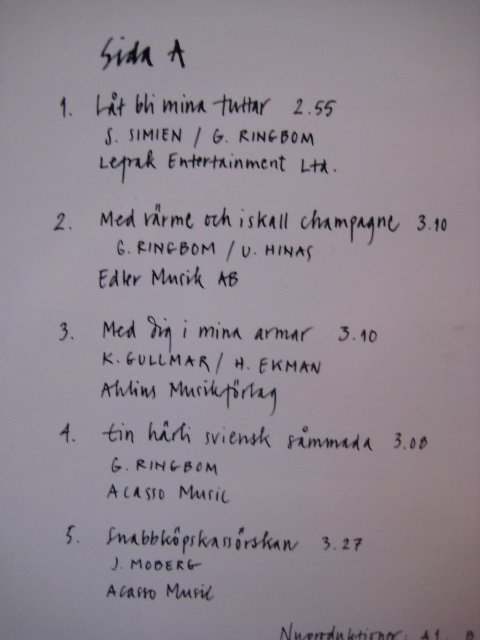 Sida A
1. Låt bli mina tuttar 2.55
S. SIMIEN / G. RINGBOM
Leprak Entertainment Ltd.
2. Med värme och iskall champagne 3.10
G. RINGBOM / U. HINAS
Edler Musik AB
3. Med dig i mina armar 3.10
K. GULLMAR / H. EKMAN
Ahlins Musikförlag
4. tin härli sviensk såmmada 3.08
G. RINGBOM
Acasso Music
5. Snabbköpskassörskan 3.27
J. MOBERG
Acasso Music